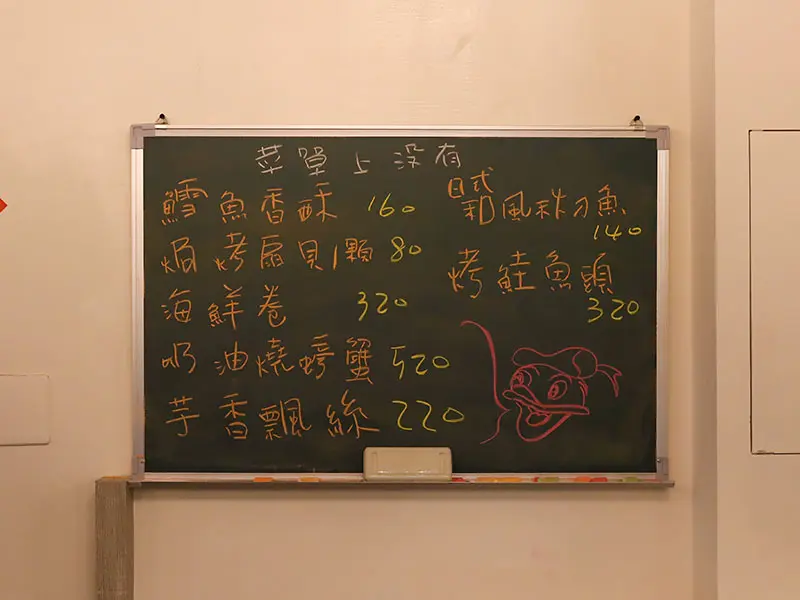 菜單上沒有
鱈魚香酥 160
焗烤扇貝1顆 80
海鮮卷 320
奶油燒螃蟹 520
芋香飄絲 220
日式
和風秋刀魚
140
烤鮭魚頭
320